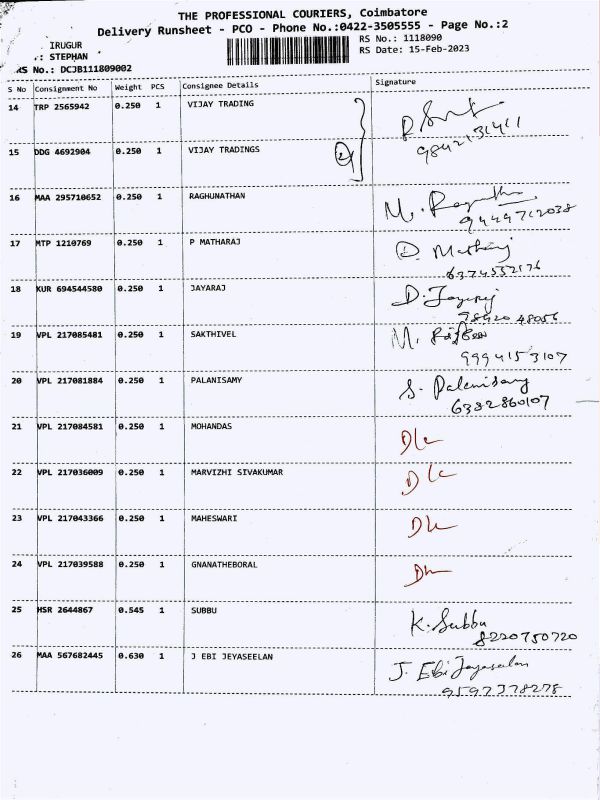 THE PROFESSIONAL COURIERS, Coimbatore
Delivery Runsheet - PCO - Phone No.:0422-3505555 - Page No.:2
IRUGUR
: STEPHAN
RS No.: DCJB111809002
RS No.: 1118090
RS Date: 15-Feb-2023
S No Consignment No Weight PCS Consignee Details Signature
14 TRP 2565942 0.250 1 VIJAY TRADING
9842131411
15 DDG 4692904 0.250 1 VIJAY TRADINGS 2
16 MAA 295710652 0.250 1 RAGHUNATHAN M.
9449712038
17 MTP 1210769 0.250 1 P MATHARAJ
6374552176
18 KUR 694544580 0.250 1 JAYARAJ D. Jayaraj
98420 48056
19 VPL 217085481 0.250 1 SAKTHIVEL M.
9994153107
20 VPL 217081884 0.250 1 PALANISAMY S. Palanisamy
6382860107
21 VPL 217084581 0.250 1 MOHANDAS D/c
22 VPL 217036009 0.250 1 MARVIZHI SIVAKUMAR D/c
23 VPL 217043366 0.250 1 MAHESWARI
24 VPL 217039588 0.250 1 GNANATHEBORAL
25 HSR 2644867 0.545 1 SUBBU K. Subbu
8220750720
26 MAA 567682445 0.630 1 J EBI JEYASEELAN J. Ebi Jeyaseelan
9597378278